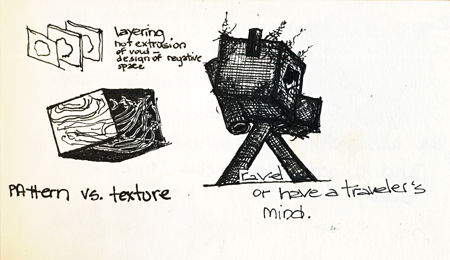 layering
not extrusion
of void -
design of negative
space
Pattern vs. texture
Travel
or have a traveler's
mind.